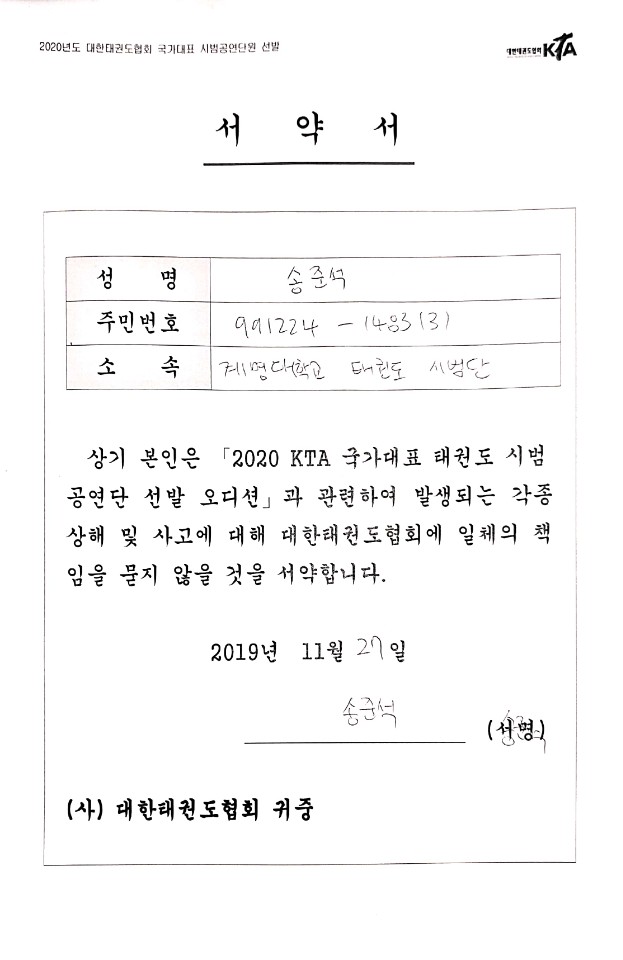 2020년도 대한태권도협회 국가대표 시범공연단원 선발
대한태권도협회 KTA
서 약 서
성 명 송준석
주민번호 991224 - 1483131
소 속 계명대학교 태권도 시범단
상기 본인은 「2020 KTA 국가대표 태권도 시범
공연단 선발 오디션」과 관련하여 발생되는 각종
상해 및 사고에 대해 대한태권도협회에 일체의 책
임을 묻지 않을 것을 서약합니다.
2019년 11월 27일
송준석
(서명)
(사) 대한태권도협회 귀중